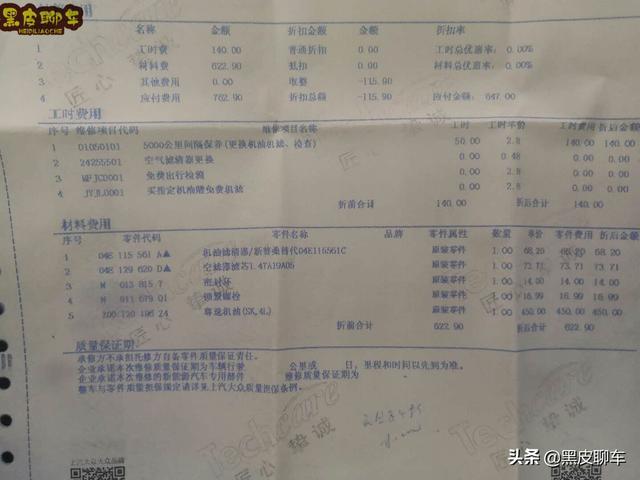 黑皮聊车
HEIPILIAOCHE
费用
名称 金额 折扣金额 折扣率
1 工时费 140.00 普通折扣 0.00 工时总优惠率: 0.00%
2 材料费 622.90 抵扣 0.00 材料总优惠率: 0.00%
3 其他费用 0.00 收整 -115.90
4 应付费用 762.90 折扣总额 -115.90 应付金额: 647.00
工时费用
序号 维修项目代码 维修项目名称 工时 工时单价 工时费用 折后金额
1 01050101 5000公里间隔保养(更换机油机滤、检查) 50.00 2.8 140.00 140.00
2 24255501 空气滤清器更换 0.00 0.48 0.00 0.00
3 免费出行检测 0.00 2.8 0.00 0.00
4 买指定机油赠免费机滤 0.00 2.8 0.00 0.00
折前合计 140.00 折后合计 140.00
材料费用
序号 零件代码 零件名称 品牌 零件属性 数量 单价 零件费用 折后金额
1 04E 115 561 A▲ 机油滤清器/新普桑替代04E115561C 原装零件 1.00 68.20 68.20 68.20
2 04E 129 620 D▲ 空滤器滤芯1.4TA19A05 原装零件 1.00 73.71 73.71 73.71
3 N 013 815 7 密封环 原装零件 1.00 14.00 14.00 14.00
4 N 911 679 01 锁紧螺栓 原装零件 1.00 16.99 16.99 16.99
5 Z00 120 196 Z4 尊选机油(SN,4L) 原装零件 1.00 450.00 450.00 450.00
折前合计 622.90 折后合计 622.90
质量保证期
承修方不承担托修方自备零件质量保证责任。
企业承诺本次维修质量保证期为车辆行驶 公里或 日,里程和时间以先到为准。
企业承诺本次维修的新能源汽车专用部件 维修质量保证期为
整车与零件质量担保规定请详见上汽大众质量担保条例。
Techcare
匠心挚诚
上汽大众大众品牌
头条 @黑皮聊车